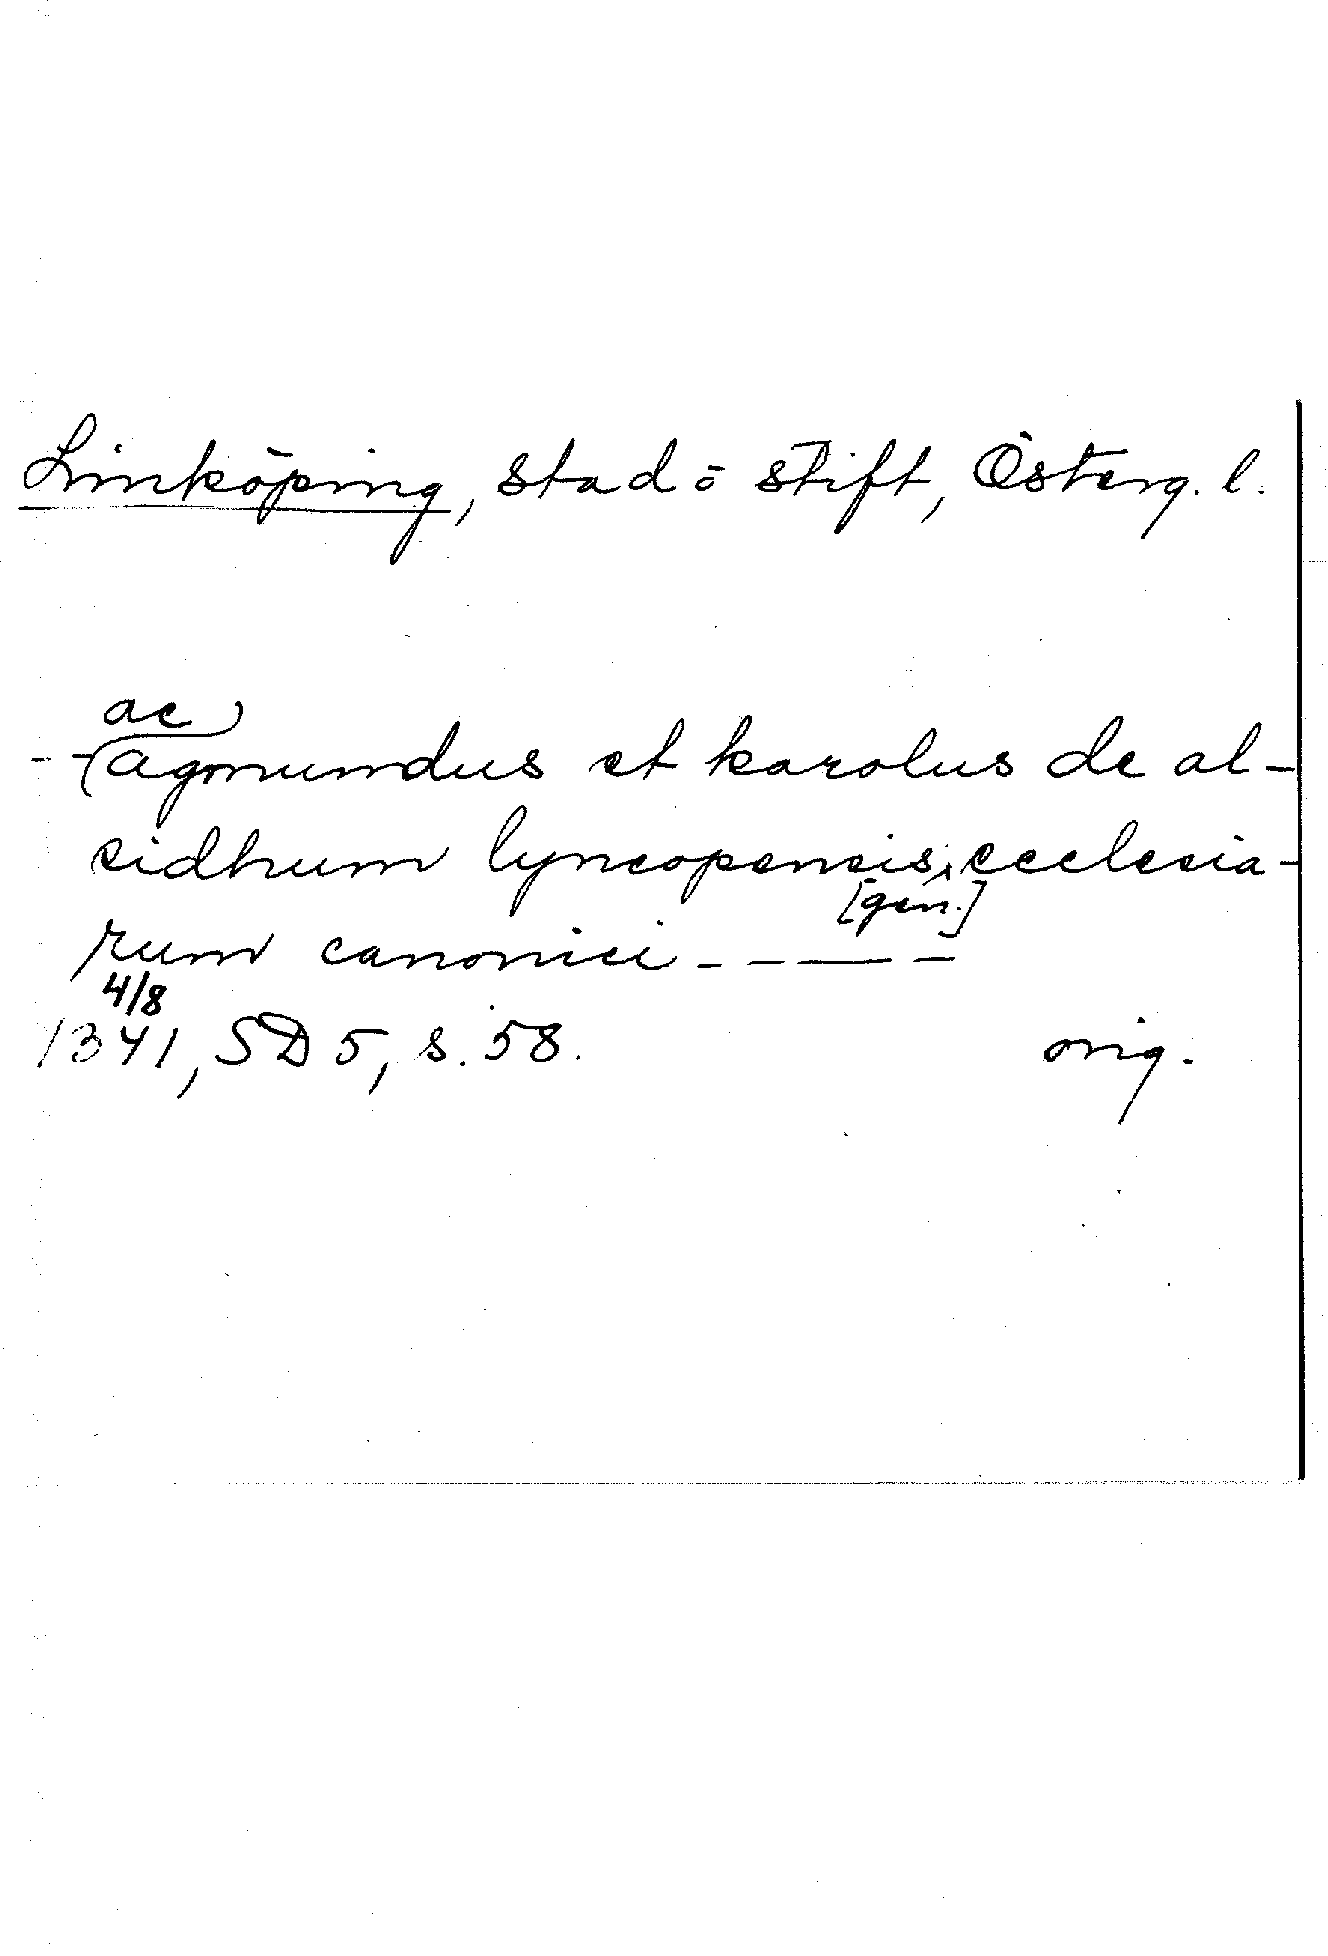 Linköping, stad o stift, Österg. l.
ac)
-- (agmundus et karolus de al-
sidhum lyncopensis, ecclesia-
[gen.]
rum canonici - - - -
4/8
1341, SD 5, s. 58. orig.